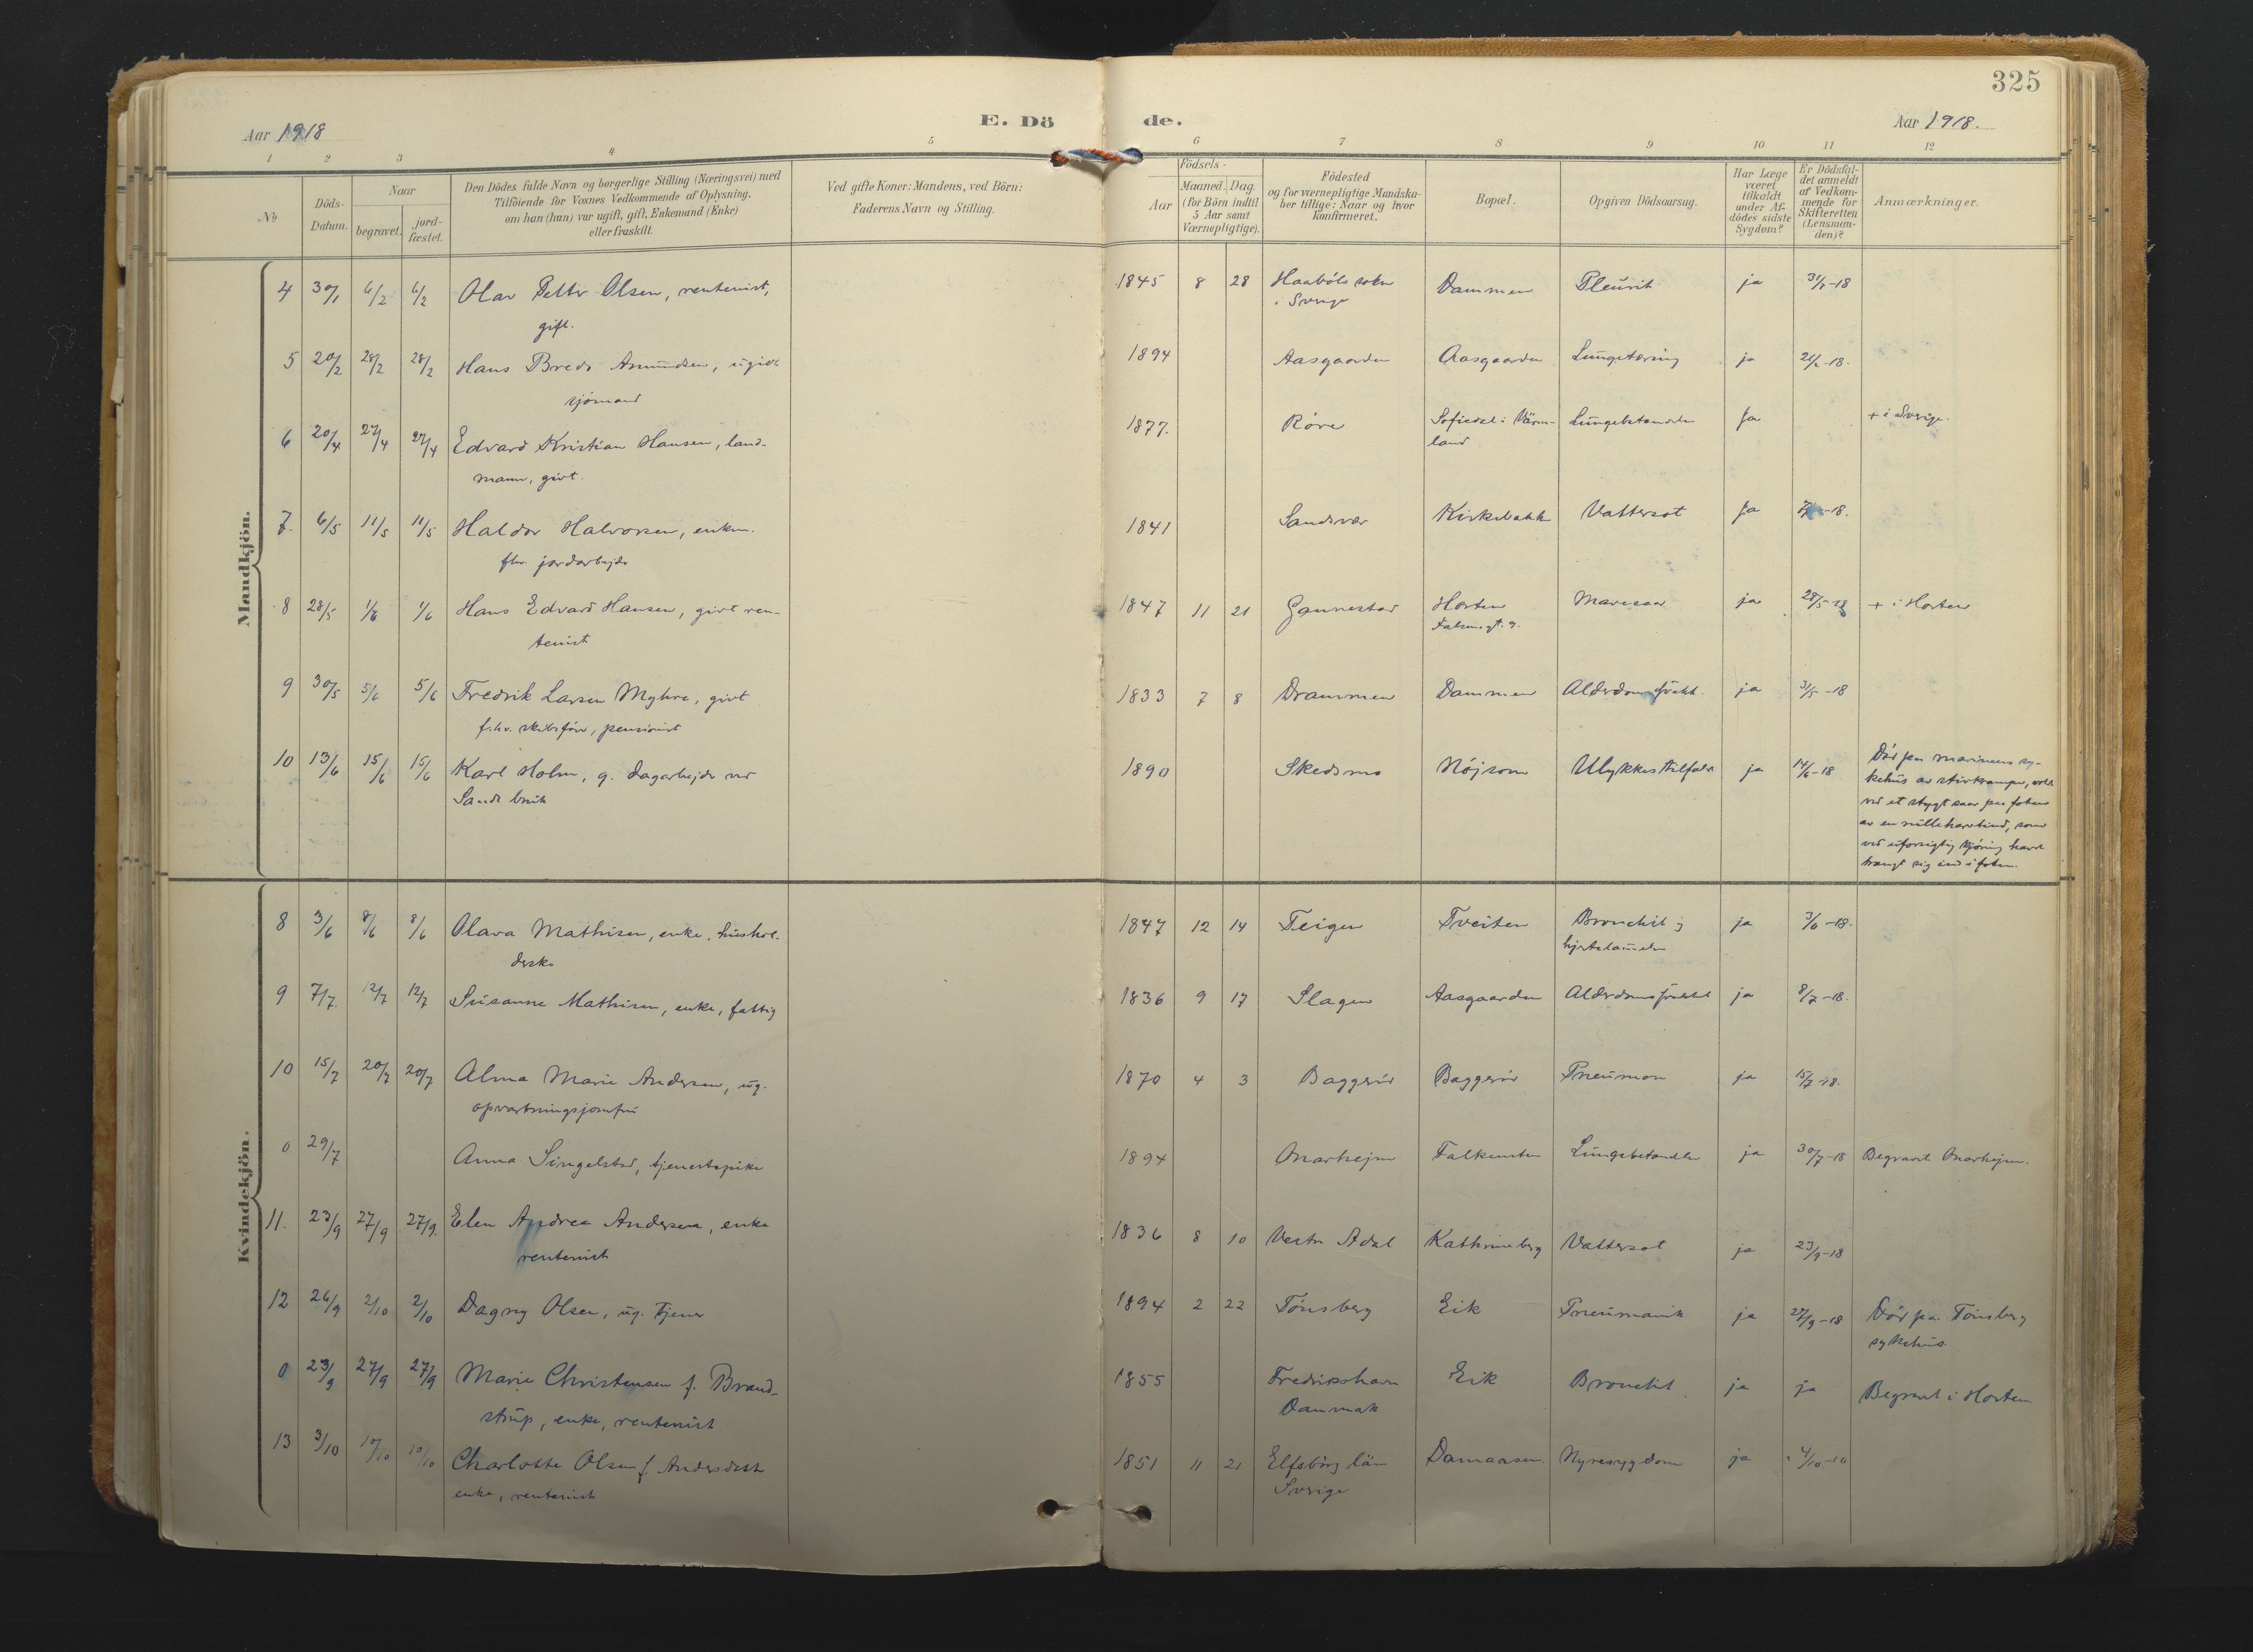 325
E. Dö de.
Aar 1918
Aar 1918.
1 2 3 4 5 6 7 8 9 10 11 12
No
Döds-
Datum.
Naar
begravet.
jord-
fæstet.
Den Dödes fulde Navn og borgerlige Stilling (Næringsvei) med
Tilföiende for Voxnes Vedkommende af Oplysning.
om han (hun) var ugift, gift, Enkemand (Enke)
eller fraskilt.
Ved gifte Koner: Mandens, ved Börn:
Faderens Navn og Stilling.
Födsels-
Aar
Maaned. Dag.
(for Börn indtil
5 Aar samt
Værnepligtige).
Födested
og for værnepligtige Mandska-
ber tillige: Naar og hvor
Konfirmeret.
Bopæl.
Opgiven Dödsaarsag.
Har Læge
været
tilkaldt
under Af-
dödes sidste
Sygdom?
Er Dödsfal-
det anmeldt
af Vedkom-
mende for
Skifteretten
(Lensman-
den)?
Anmærkninger.
Mandkjön.
4 30/1 6/2 6/2 Olav Petter Olsen, rentenist, 1845 8 28 Dammen Pleurit ja 31/1-18
gift. i Sverige
5 20/2 28/2 28/2 Hans Bredo Amundsen, 1894 Aasgaarden Aasgaarden Lungetæring ja 21/2-18.
sjömand
6 20/4 27/4 27/4 Edvard Kristian Hansen, land- 1877. Röre i Värm- Ja + i Sverige.
mann, givt. land
7. 6/5 11/5 11/5 Haldor Halvorsen, enkm. 1841 Sandsvær Kirkebakk Vattersot Ja -18.
fhv. jordarbejder
8 28/5 1/6 1/6 Hans Edvard Hansen, givt ren- 1847 11 21 Gannestad Horten Mavesaar ja 28/5-18 + i Horten
tenist
9 30/5 5/6 5/6 Fredrik Larsen Myhre, givt 1833 7 8 Drammen Dammen ja 31/5-18
f.hv. skibsförer, pensionist
10 13/6 15/6 15/6 Karl Holm, g. dagarbejder ved 1890 Skedsmo Nöjsom Ulykkestilfælde ja 14/6-18
Sande bruk
Död paa marinens sy-
kehus av stivkrampe, voldt
ved et stygt saar paa foten
av en rulleharvtind, som
ved uforsigtig kjöring havde
trængt sig ind i foten.
Kvindekjön.
8 3/6 8/6 8/6 Olava Mathisen, enke, hushol- 1847 12 14 Teigen Tveiten Bronchit ja 3/6-18.
derske
9 7/7. 12/7 12/7 Susanne Mathisen, enke, fattig 1836 9 17 Slagen Aasgaarden ja 8/7-18.
10 15/7 20/7 20/7 Alma Marie Andersen, ug. 1870 4 3 Baggeröd Baggeröd Pneumon ja 15/7-18.
opvartningsjomfru
0 29/7 Anna Singelstad, tjenestepike 1894 Onarhejm Falkensten ja 30/7-18 Begravet Onarhejm.
11. 23/9 27/9 27/9. Elen Andrea Andersen, enke 1836 8 10 Vestre Adal Kathrineberg Vattersot ja 23/9-18
rentenist
12 26/9 2/10 2/10 Dagny Olsen, ug. tjener 1894 2 22 Tönsberg Eik ja 27/9-18 Död paa Tönsberg
sykehus.
0 23/9 27/9 27/9 Marie Christensen f. Brand- 1855 Fredrikshavn Eik Bronchit ja ja Begravet i Horten
strup, enke, rentenist Danmark
13 3/10 10/10 10/10 Charlotte Olsen f. Andersdatter 1851 11 21 Elfsborg län Damaasen Nyresygdom ja 4/10-
enke, rentenist Sverige